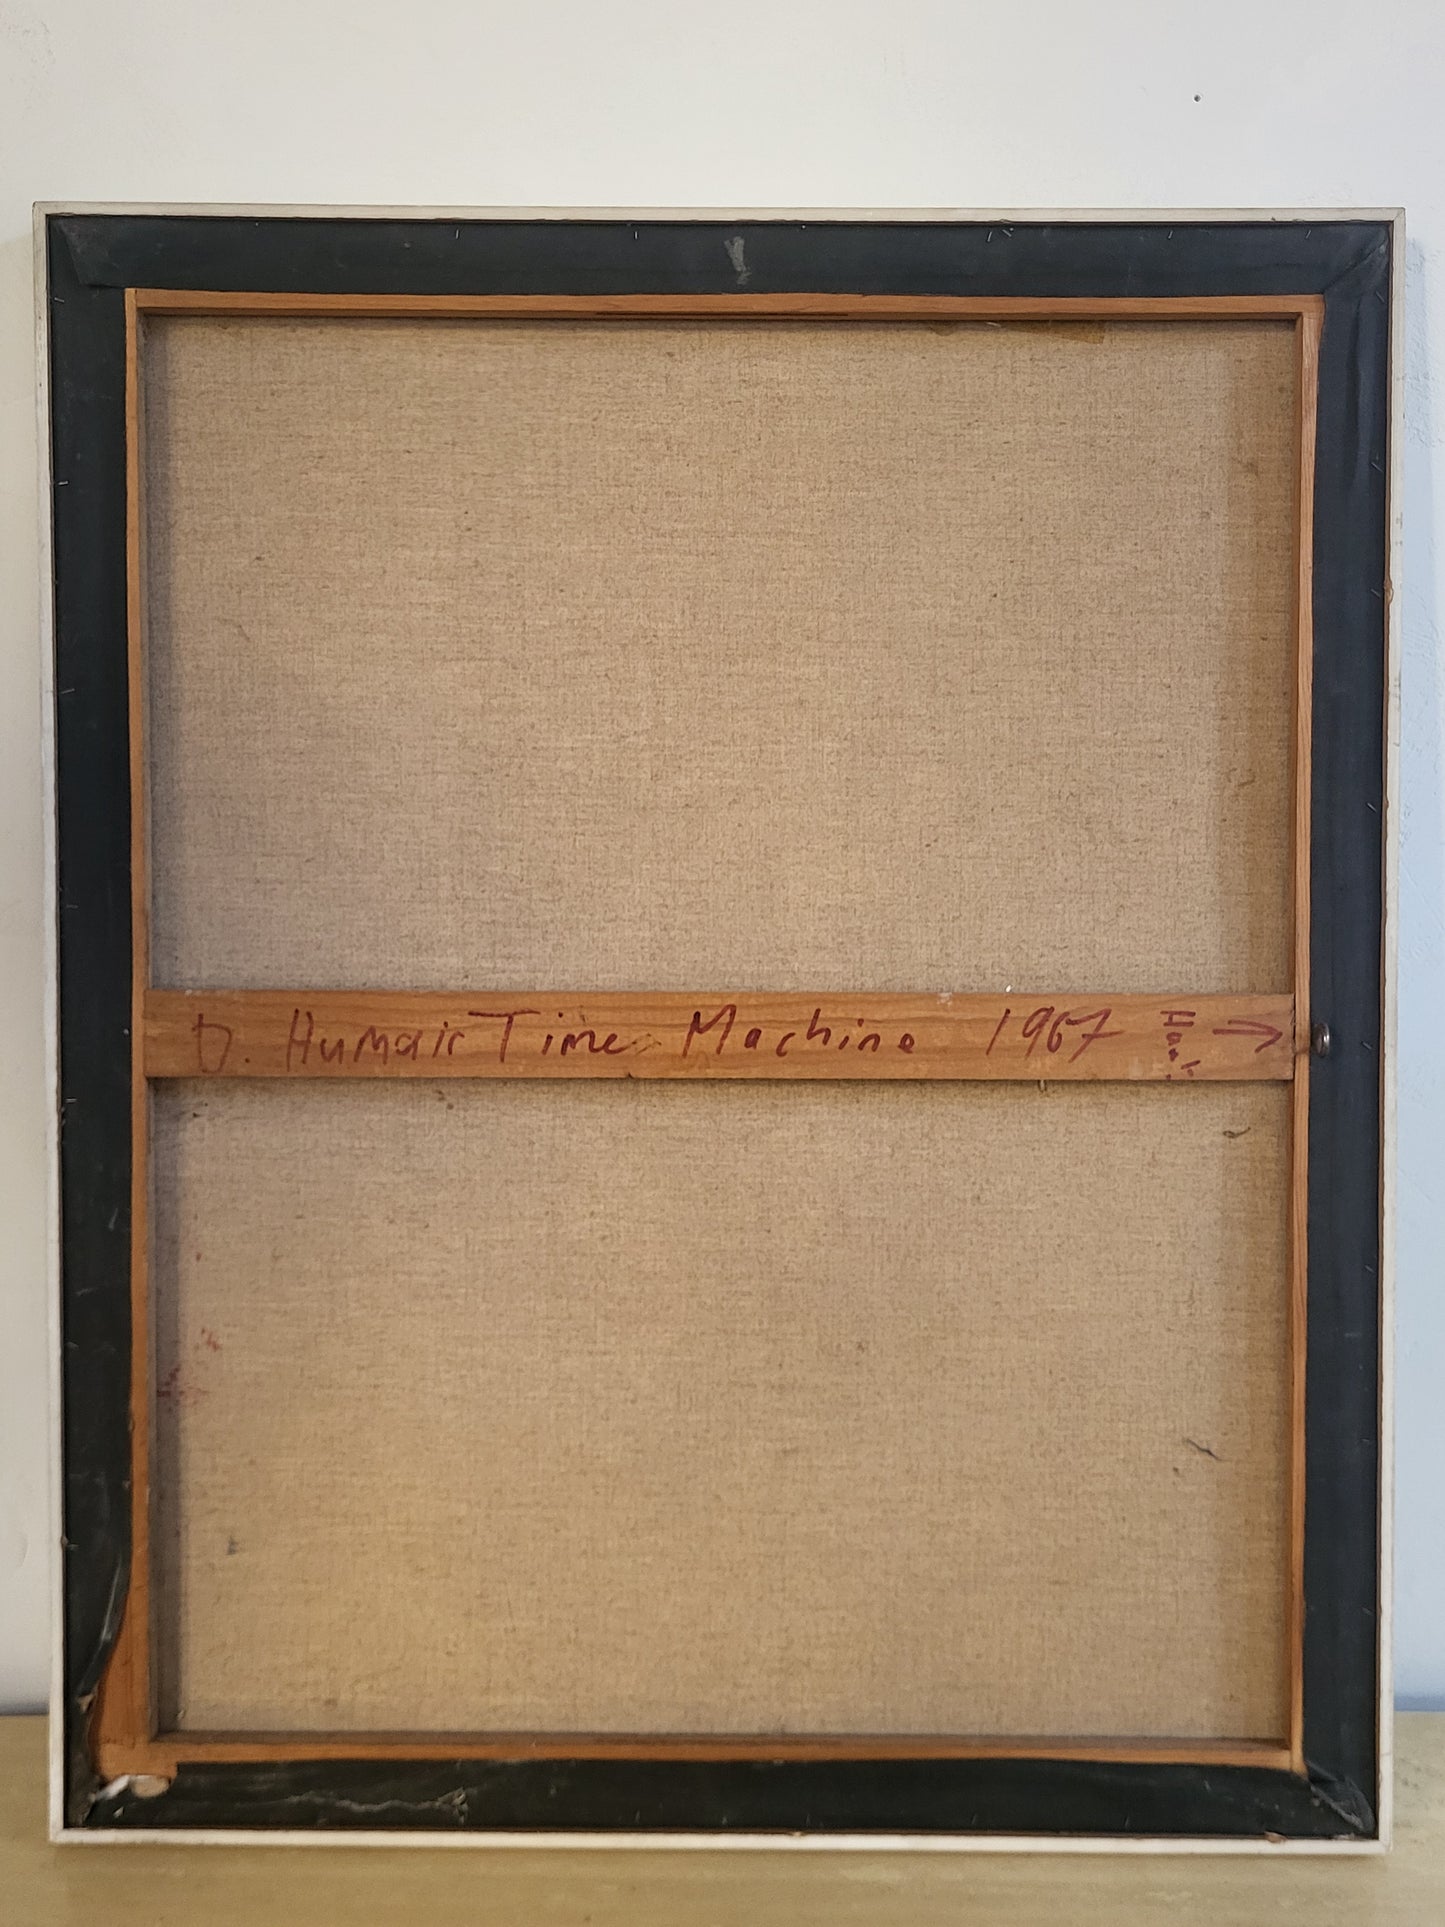 D. Humair Time Machine 1967
Haut →